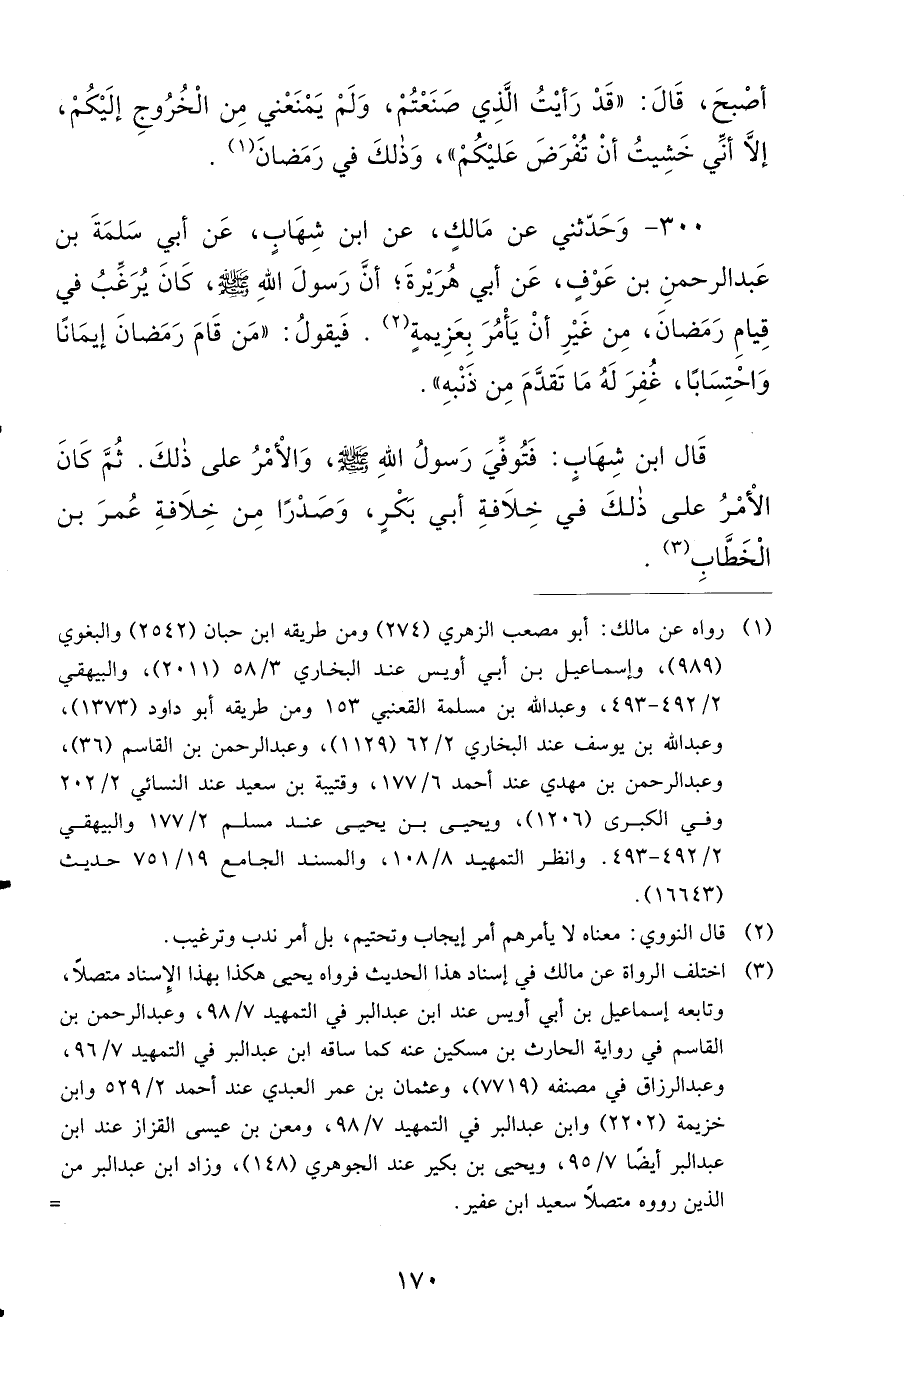 أصْبحَ، قَالَ: «قَدْ رَأيْتُ الَّذِي صَنَعْتُمْ، وَلَمْ يَمْنَعْني مِن الْخُرُوجِ إلَيْكُمْ،
إلاَّ أنِّي خَشِيتُ أنْ تُفْرَضَ عَلَيْكُمْ»، وَذٰلكَ في رَمَضانَ(١) .
٣٠٠- وَحَدّثني عن مَالكٍ، عن ابن شِهَابٍ، عَن أبي سَلمَةَ بن
عَبدالرحمنِ بن عَوْفٍ، عَن أبي هُرَيْرةَ؛ أنَّ رَسولَ اللهِ ﷺ، كَانَ يُرَغِّبُ في
قِيامِ رَمَضانَ، مِن غَيْرِ أنْ يَأْمُرَ بِعَزِيمةٍ(٢) . فَيقولُ: «مَن قَامَ رَمَضانَ إيمَانًا
وَاحْتِسَابًا، غُفِرَ لَهُ مَا تَقدَّمَ مِن ذَنْبهِ».
قَال ابن شِهَابٍ: فَتُوفِّيَ رَسولُ اللهِ ﷺ، وَالأمْرُ على ذٰلكَ. ثُمَّ كَانَ
الأمْرُ على ذٰلكَ في خِلاَفةِ أبي بَكْرٍ، وَصَدْرًا مِن خِلاَفةِ عُمرَ بن
الْخَطَّابِ(٣) .
(١) رواه عن مالك: أبو مصعب الزهري (٢٧٤) ومن طريقه ابن حبان (٢٥٤٢) والبغوي
(٩٨٩)، وإسماعيل بن أبي أويس عند البخاري ٥٨/٣ (٢٠١١)، والبيهقي
٤٩٢/٢-٤٩٣، وعبدالله بن مسلمة القعنبي ١٥٣ ومن طريقه أبو داود (١٣٧٣)،
وعبدالله بن يوسف عند البخاري ٦٢/٢ (١١٢٩)، وعبدالرحمن بن القاسم (٣٦)،
وعبدالرحمن بن مهدي عند أحمد ١٧٧/٦، وقتيبة بن سعيد عند النسائي ٢٠٢/٢
وفي الكبرى (١٢٠٦)، ويحيى بن يحيى عند مسلم ١٧٧/٢ والبيهقي
٤٩٢/٢-٤٩٣. وانظر التمهيد ١٠٨/٨، والمسند الجامع ٧٥١/١٩ حديث
(١٦٦٤٣).
(٢) قال النووي: معناه لا يأمرهم أمر إيجاب وتحتيم، بل أمر ندب وترغيب.
(٣) اختلف الرواة عن مالك في إسناد هذا الحديث فرواه يحيى هكذا بهذا الإسناد متصلاً،
وتابعه إسماعيل بن أبي أويس عند ابن عبدالبر في التمهيد ٩٨/٧، وعبدالرحمن بن
القاسم في رواية الحارث بن مسكين عنه كما ساقه ابن عبدالبر في التمهيد ٩٦/٧،
وعبدالرزاق في مصنفه (٧٧١٩)، وعثمان بن عمر العبدي عند أحمد ٥٢٩/٢ وابن
خزيمة (٢٢٠٢) وابن عبدالبر في التمهيد ٩٨/٧، ومعن بن عيسى القزاز عند ابن
عبدالبر أيضًا ٩٥/٧، ويحيى بن بكير عند الجوهري (١٤٨)، وزاد ابن عبدالبر من
الذين رووه متصلاً سعيد ابن عفير. =
١٧٠